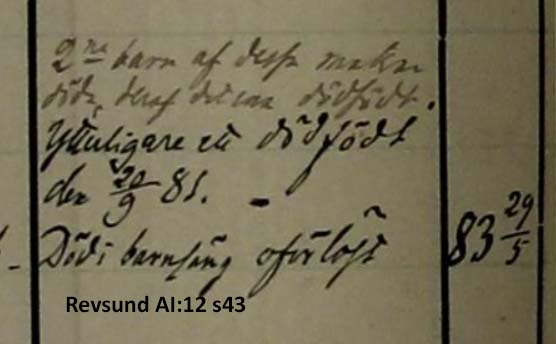 2ne barn af dessa makar
döde, deraf det ena dödfödt.
Ytterligare ett dödfödt
den 20/9 81. -
- Död i barnsäng oförlöst 83 29/5
Revsund AI:12 s43